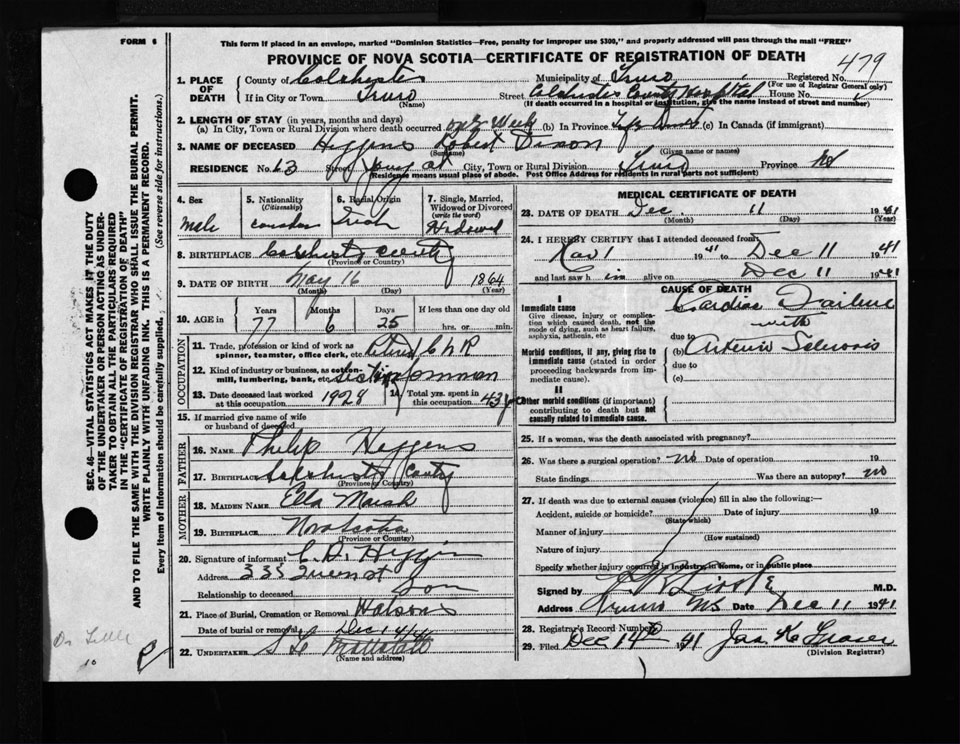 FORM 6
This form if placed in an envelope, marked "Dominion Statistics—Free, penalty for improper use $300," and properly addressed will pass through the mail "FREE"
PROVINCE OF NOVA SCOTIA—CERTIFICATE OF REGISTRATION OF DEATH
479
1. PLACE OF DEATH County of Colchester Municipality of Truro Registered No.
(For use of Registrar General only)
If in City or Town Truro Street Colchester County Hospital House No.
(Name) (If death occurred in a hospital or institution, give the name instead of street and number)
2. LENGTH OF STAY (in years, months and days)
(a) In City, Town or Rural Division where death occurred one week (b) In Province (c) In Canada (if immigrant)
3. NAME OF DECEASED Higgins Robert Dixon
(Surname) (Given name or names)
RESIDENCE No. 63 Street Young st City, Town or Rural Division Truro Province NS
(Residence means usual place of abode. Post Office Address for residents in rural parts not sufficient)
4. Sex
Male
5. Nationality
(Citizenship)
Canadian
6. Racial Origin
Irish
7. Single, Married, Widowed or Divorced
(write the word)
Widowed
8. BIRTHPLACE Colchester County
(Province or Country)
9. DATE OF BIRTH May 16 1864
(Month) (Day) (Year)
10. AGE in Years Months Days If less than one day old
77 6 25 hrs. or min.
OCCUPATION
11. Trade, profession or kind of work as
spinner, teamster, office clerk, etc. Retired CNR
12. Kind of industry or business, as cotton-
mill, lumbering, bank, etc. Section foreman
13. Date deceased last worked at this occupation 1928
14. Total yrs. spent in this occupation 43 y
15. If married give name of wife
or husband of deceased
FATHER
16. NAME Philip Higgins
17. BIRTHPLACE Colchester County
(Province or Country)
MOTHER
18. MAIDEN NAME Ella Marsh
19. BIRTHPLACE Nova Scotia
(Province or Country)
20. Signature of informant C. D. Higgins
Address 333 Queen st
Relationship to deceased Son
21. Place of Burial, Cremation or Removal Watsons
Date of burial or removal Dec 14/41
22. UNDERTAKER
(Name and address)
MEDICAL CERTIFICATE OF DEATH
23. DATE OF DEATH Dec. 11 1941
(Month) (Day) (Year)
24. I HEREBY CERTIFY that I attended deceased from
Nov 1 1941 to Dec 11 1941
and last saw him alive on Dec 11 1941
CAUSE OF DEATH
I
Immediate cause
Give disease, injury or complication which caused death, not the mode of dying, such as heart failure, asphyxia, asthenia, etc
Cardiac Failure
with
due to
Morbid conditions, if any, giving rise to immediate cause (stated in order proceeding backwards from immediate cause).
(b) Arterio Sclerosis
due to
(c)
II
Other morbid conditions (if important) contributing to death but not causally related to immediate cause.
25. If a woman, was the death associated with pregnancy?
26. Was there a surgical operation? No Date of operation 19
State findings Was there an autopsy? no
27. If death was due to external causes (violence) fill in also the following:—
Accident, suicide or homicide? Date of injury 19
(State which)
Manner of injury
(How sustained)
Nature of injury
Specify whether injury occurred in Industry, in Home, or in public place
Signed by M.D.
Address Truro NS Date Dec 11 1941
28. Registrar's Record Number
29. Filed Dec 14th 1941 Jas K Fraser
(Division Registrar)
SEC. 46—VITAL STATISTICS ACT MAKES IT THE DUTY
OF THE UNDERTAKER OR PERSON ACTING AS UNDER-
TAKER TO OBTAIN ALL THE PARTICULARS REQUIRED
IN THE "CERTIFICATE OF REGISTRATION OF DEATH"
AND TO FILE THE SAME WITH THE DIVISION REGISTRAR WHO SHALL ISSUE THE BURIAL PERMIT.
WRITE PLAINLY WITH UNFADING INK. THIS IS A PERMANENT RECORD.
Every item of information should be carefully supplied. (See reverse side for instructions.)
Dr Little
10